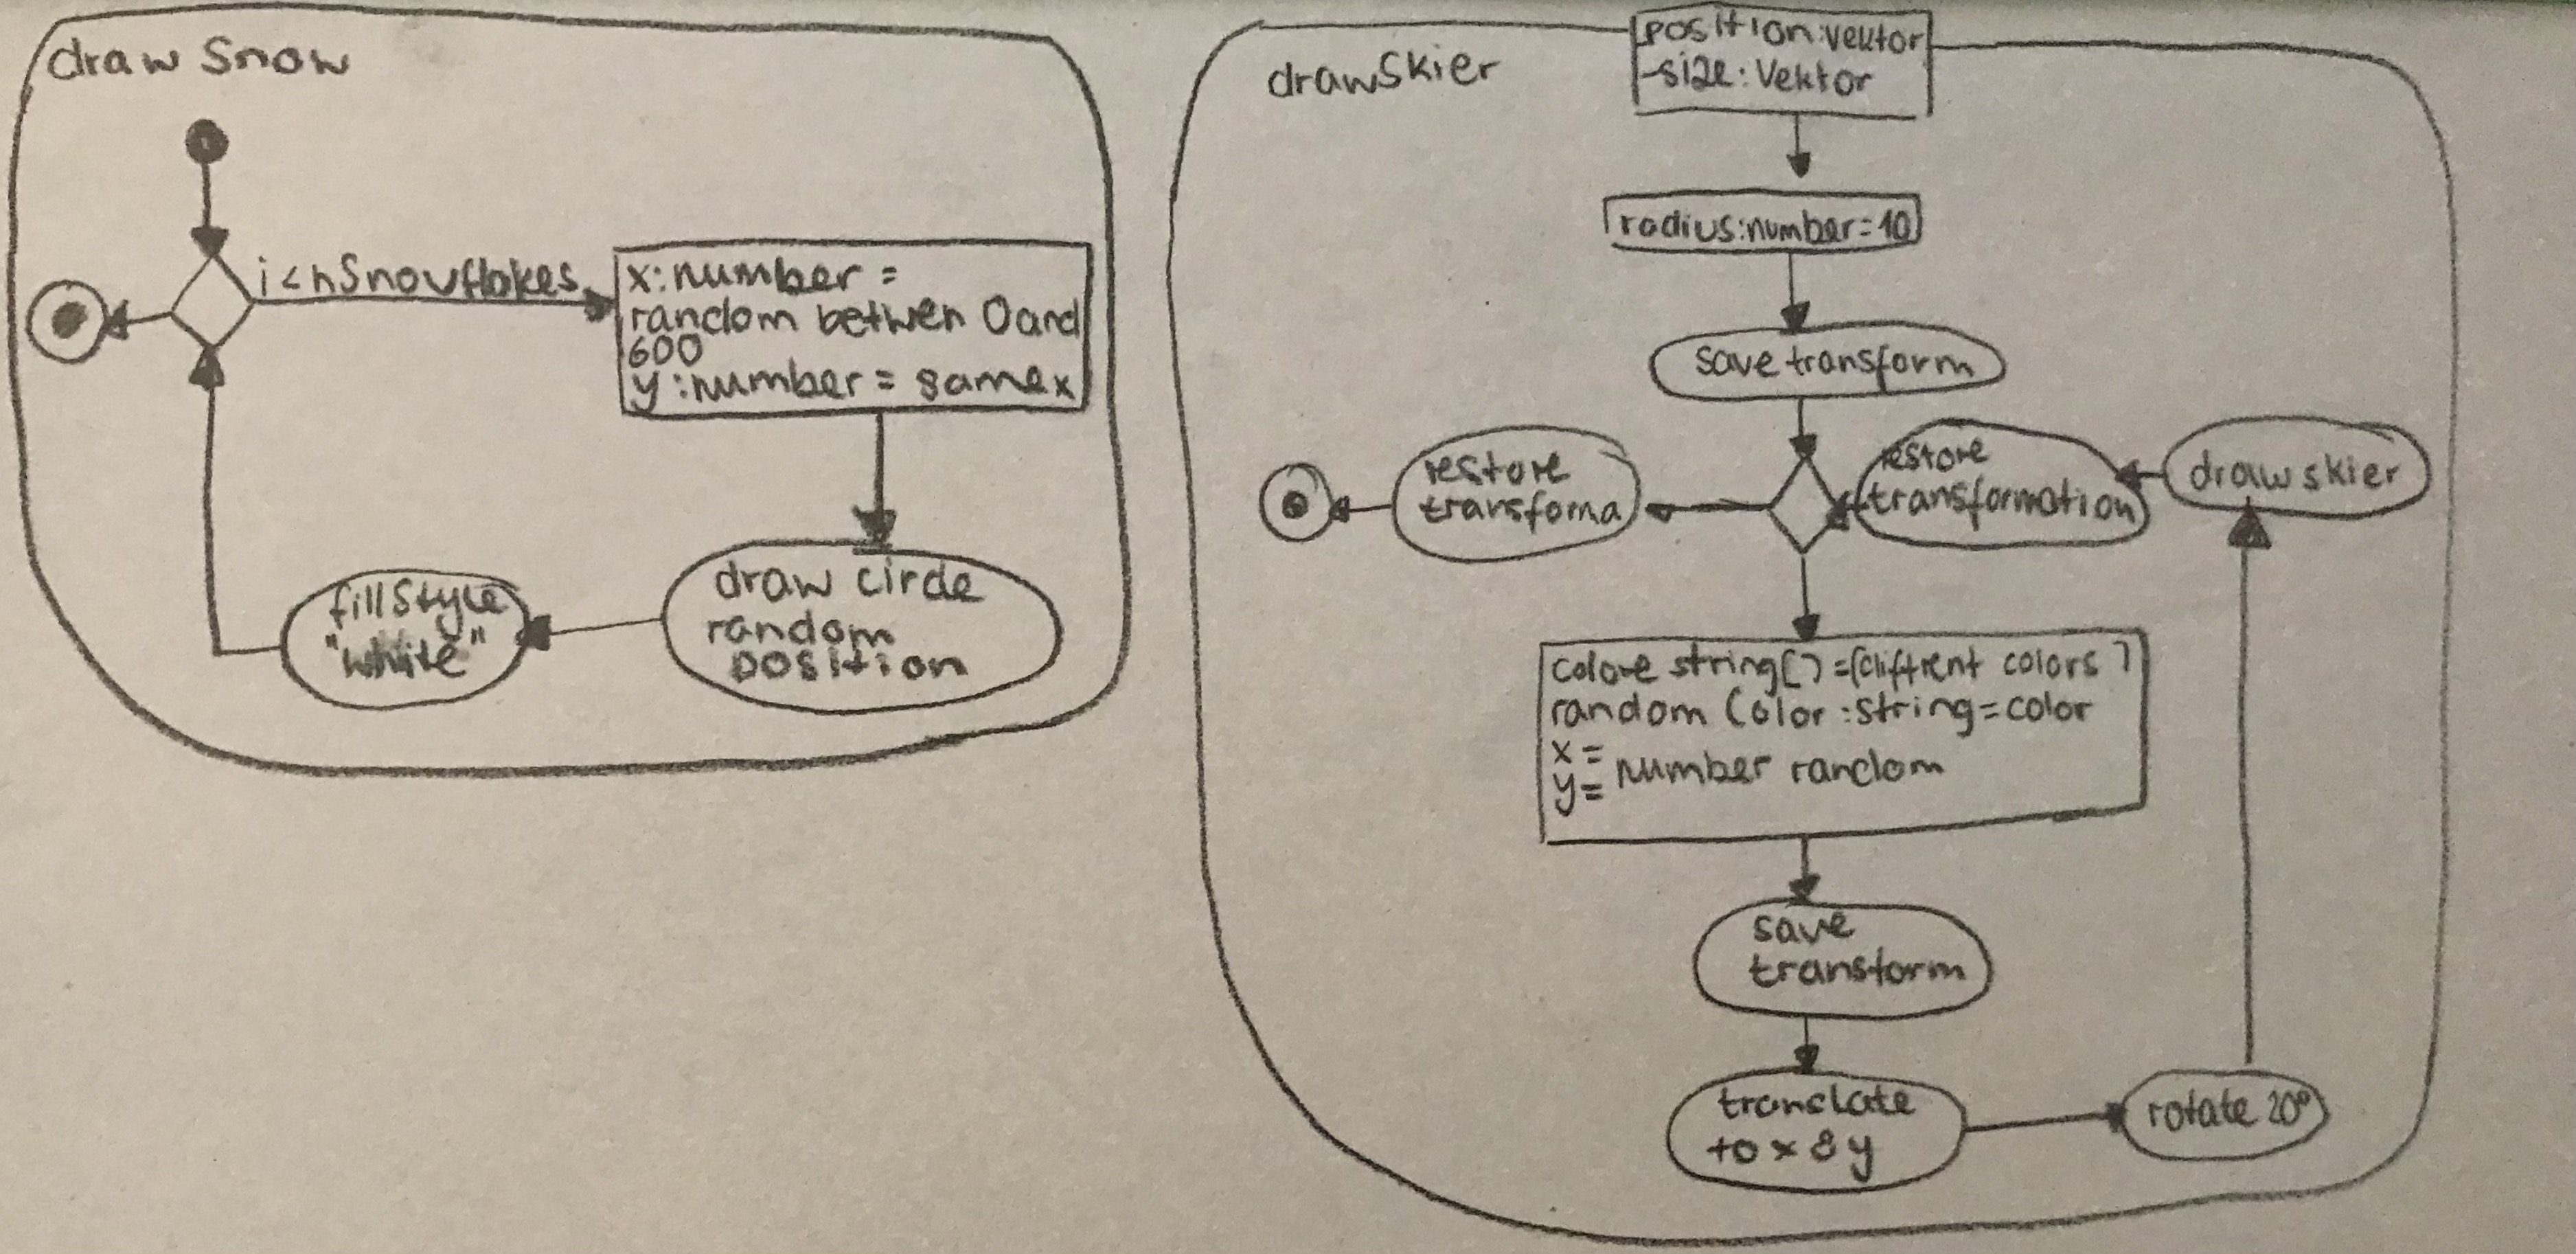 draw Snow
i<nSnowflakes
x:number =
random betwen 0 and
600
y:number = same x
draw circle
random
position
fillStyle
"white"
drawSkier
position:vektor
-size: Vektor
radius:number=10
save transform
restore
transforma
restore
transformation
draw skier
colore string[] = (diffrent colors)
random Color :string=color
x =
y= number random
save
transform
translate
to x & y
rotate 20°